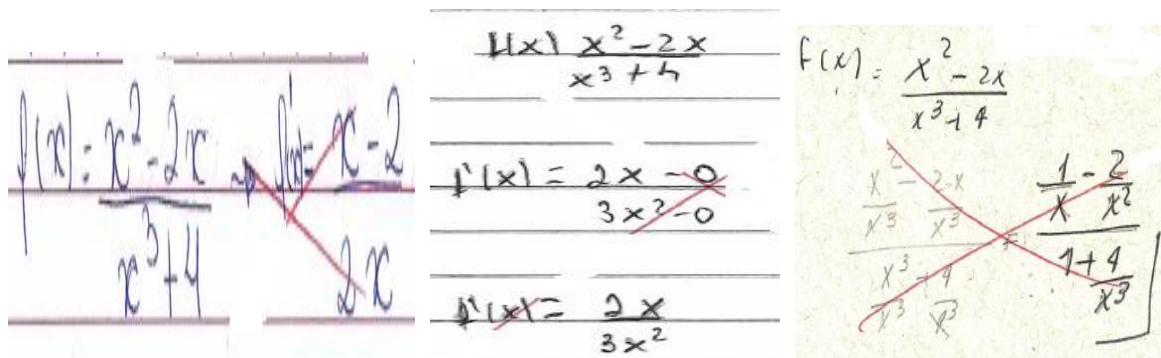 f(x) = x² - 2x / x³ + 4 → f'(x) = x - 2 / 2x
f(x) x² - 2x / x³ + 4
f'(x) = 2x - 0 / 3x² - 0
f'(x) = 2x / 3x²
f(x) = x² - 2x / x³ + 4
x²/x³ - 2x/x³ / x³/x³ + 4/x³ = 1/x - 2/x² / 1 + 4/x³